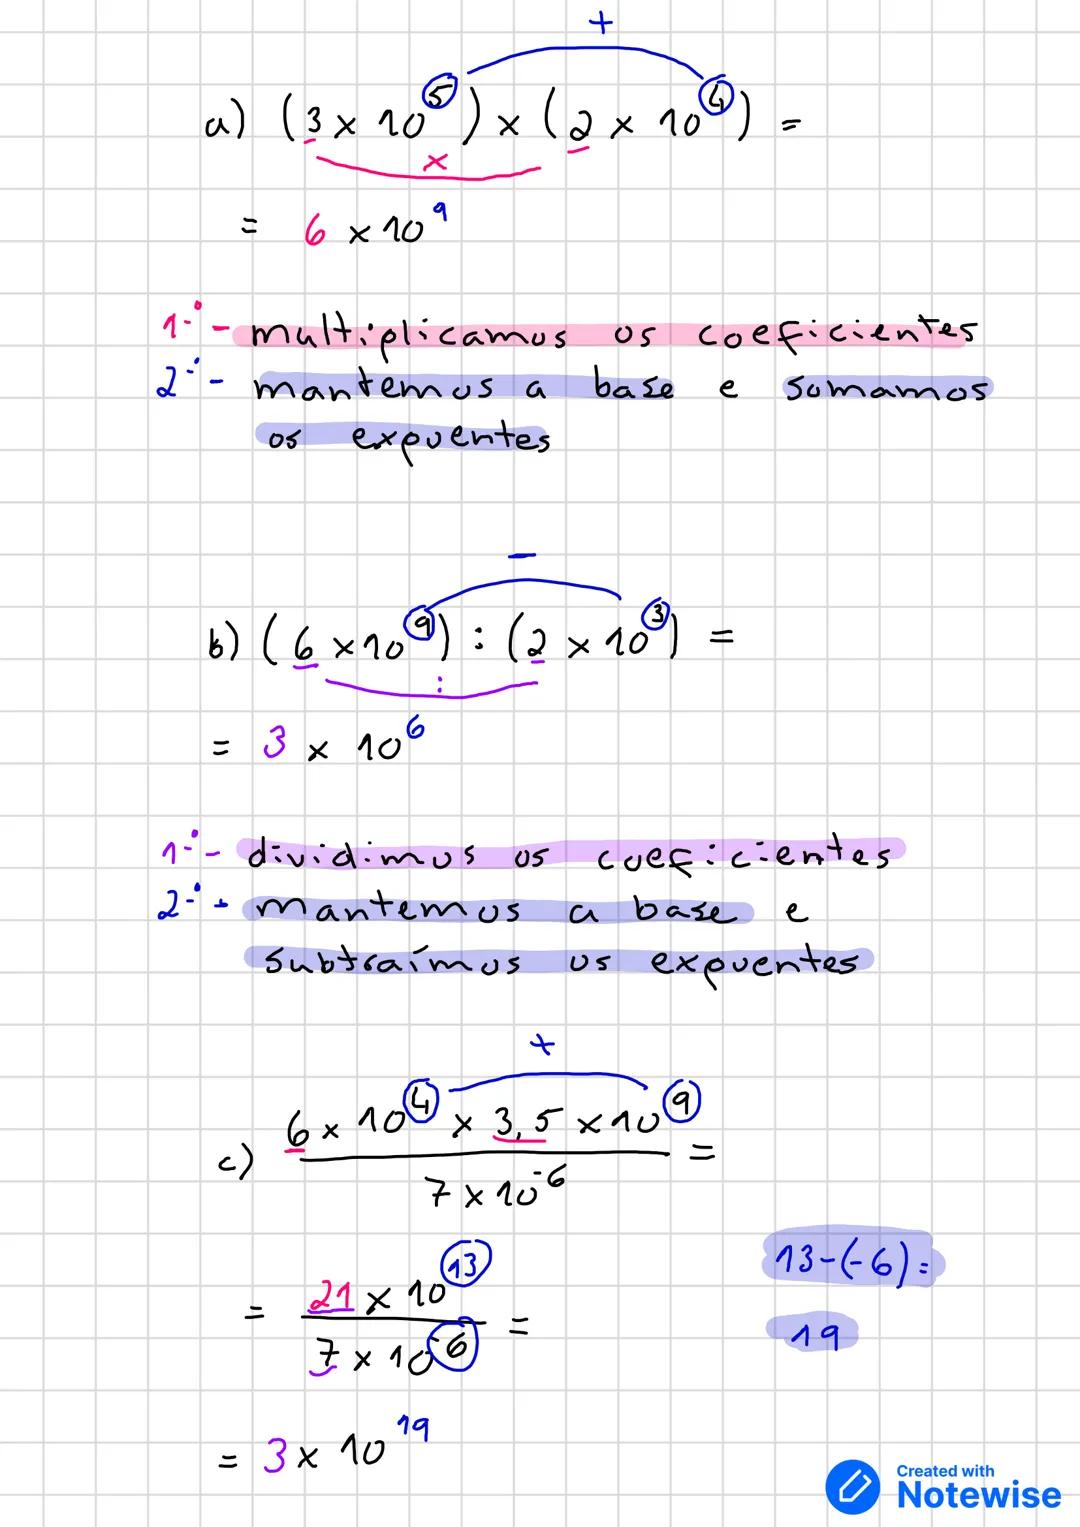 +
a) (3 x 10⁵) x (2 x 10⁴) =
x
= 6 x 10⁹
1.º - multiplicamos os coeficientes
2.º - mantemos a base e somamos
os expoentes
-
b) (6 x 10⁹) : (2 x 10³) =
:
= 3 x 10⁶
1.º - dividimos os coeficientes
2.º - mantemos a base e
subtraímos os expoentes
+
6 x 10⁴ x 3,5 x 10⁹
c) =
7 x 10⁻⁶
21 x 10¹³
= =
7 x 10⁻⁶
13-(-6)=
19
= 3 x 10¹⁹
Created with
Notewise